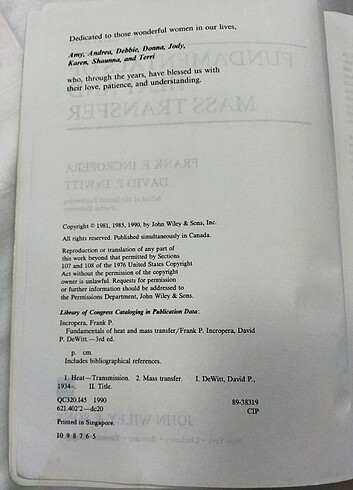 Dedicated to those wonderful women in our lives,
Amy, Andrea, Debbie, Donna, Jody,
Karen, Shaunna, and Terri
who, through the years, have blessed us with
their love, patience, and understanding.
FUNDAMENTALS OF
HEAT AND
MASS TRANSFER
FRANK P. INCROPERA
DAVID P. DEWITT
School of Mechanical Engineering
Purdue University
Copyright © 1981, 1985, 1990, by John Wiley & Sons, Inc.
All rights reserved. Published simultaneously in Canada.
Reproduction or translation of any part of
this work beyond that permitted by Sections
107 and 108 of the 1976 United States Copyright
Act without the permission of the copyright
owner is unlawful. Requests for permission
or further information should be addressed to
the Permissions Department, John Wiley & Sons.
Library of Congress Cataloging in Publication Data:
Incropera, Frank P.
Fundamentals of heat and mass transfer/Frank P. Incropera, David
P. DeWitt.—3rd ed.
p. cm.
Includes bibliographical references.
1. Heat—Transmission. 2. Mass transfer. I. DeWitt, David P.,
1934–. II. Title.
QC320.I45 1990
621.402'2—dc20
89-38319
CIP
JOHN WILEY & SONS
Printed in Singapore.
10 9 8 7 6 5